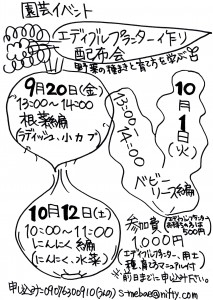 園芸イベント
エディブルプランター作り
配布会
野菜の種まきと育て方を学ぶ
9月20日(金)
13:00〜14:00
根菜編
ラディッシュ、小カブ
10月1日(火)
13:00〜14:00
ベビーリーフ編
10月12日(土)
10:00〜11:00
にんにく編
(にんにく、水菜)
参加費
エディブルプランター
お持ちの方は
500円
1,000円
エディブルプランター、用土
種、育て方マニュアル付
前日までに申込み下さい。
申し込み:09076300910(おの) s-mebae@nifty.com